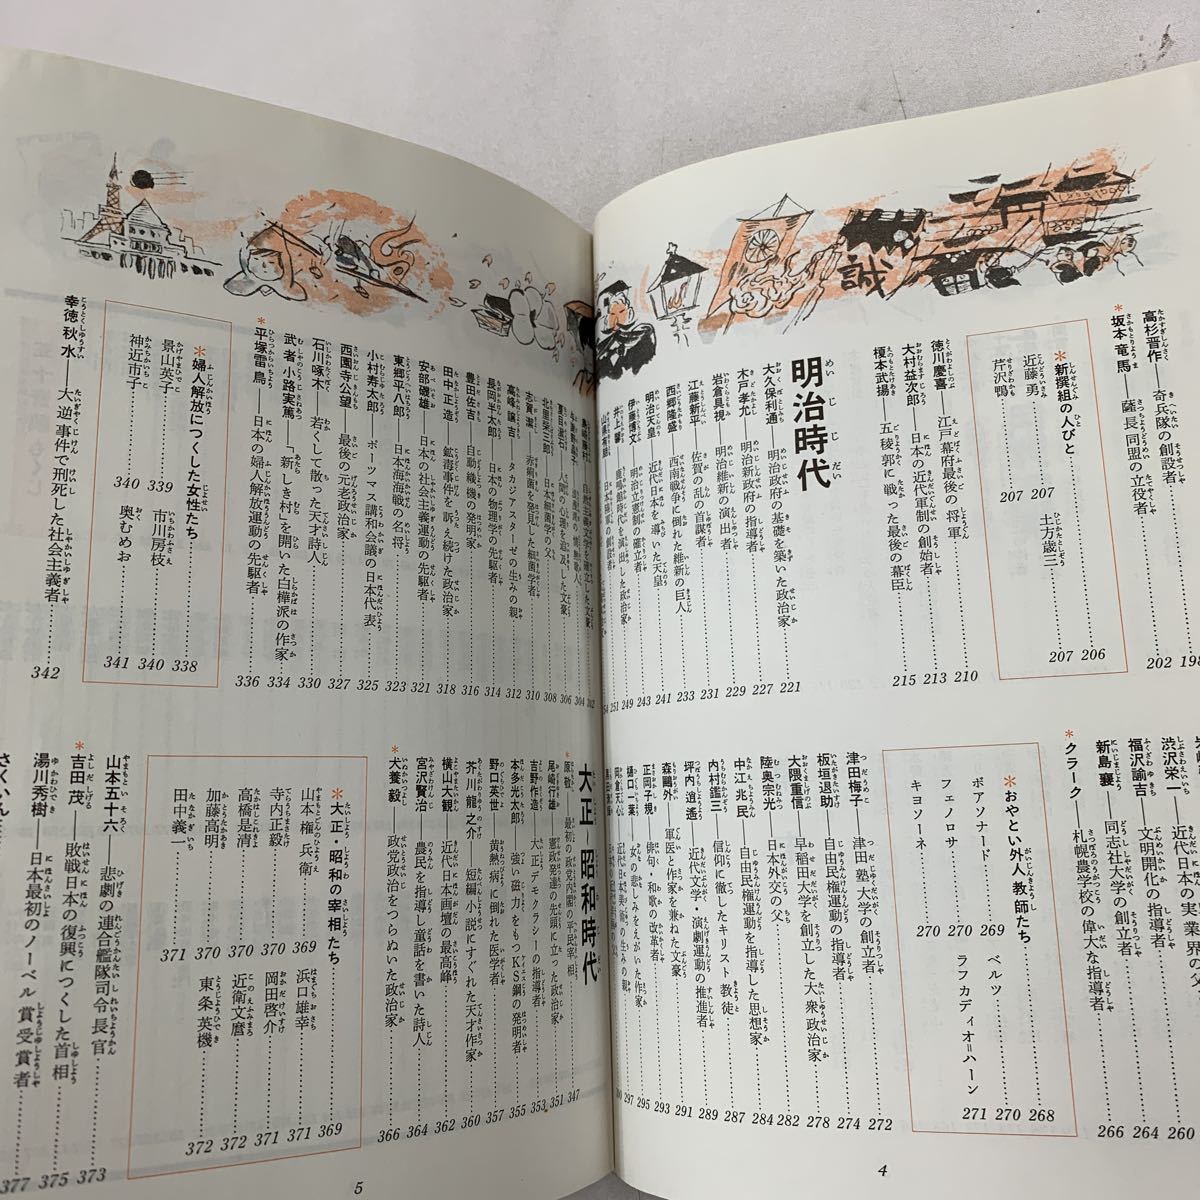 高杉晋作――奇兵隊の創設者……198
*坂本竜馬――薩長同盟の立役者……202
*新撰組の人びと……206
近藤勇……207
土方歳三……207
芹沢鴨……207
徳川慶喜――江戸幕府最後の将軍……210
大村益次郎――日本の近代軍制の創始者……213
榎本武揚――五稜郭に戦った最後の幕臣……215
明治時代
大久保利通――明治政府の基礎を築いた政治家……221
木戸孝允――明治新政府の指導者……227
岩倉具視――明治維新の演出者……229
江藤新平――佐賀の乱の首謀者……231
西郷隆盛――西南戦争に倒れた維新の巨人……233
明治天皇――近代日本を導いた天皇……241
伊藤博文――明治立憲制の確立者……243
井上馨――鹿鳴館時代を演出した政治家……249
山県有朋……251
渋沢栄一――近代日本の実業界の父
福沢諭吉――文明開化の指導者……260
新島襄――同志社大学の創立者……264
*クラーク――札幌農学校の偉大な指導者……266
*おやとい外人教師たち……268
ボアソナード……269
ベルツ……270
フェノロサ……270
ラフカディオ=ハーン……271
キヨソーネ……270
津田梅子――津田塾大学の創立者……272
板垣退助――自由民権運動の指導者……274
大隈重信――早稲田大学を創立した大衆政治家……278
陸奥宗光――日本外交の父……282
中江兆民――自由民権運動を指導した思想家……284
内村鑑三――信仰に徹したキリスト教徒……287
坪内逍遥――近代文学・演劇運動の推進者……289
森鷗外――軍医と作家を兼ねた文豪……291
正岡子規――俳句・和歌の改革者……293
樋口一葉――女の悲しみをえがいた……295
岡倉天心――近代日本美術の生みの親……297
4
島崎藤村……302
与謝野晶子……304
夏目漱石――人間の心理を追及した文豪……306
北里柴三郎――日本細菌学の父……308
志賀潔――赤痢菌を発見した細菌学者……310
高峰譲吉――タカジアスターゼの生みの親……312
長岡半太郎――日本の物理学の先駆者……314
豊田佐吉――自動織機の発明家……316
田中正造――鉱毒事件を訴え続けた政治家……318
安部磯雄――日本の社会主義運動の先駆者……321
東郷平八郎――日本海海戦の名将……323
小村寿太郎――ポーツマス講和会議の日本代表……325
西園寺公望――最後の元老政治家……327
石川啄木――若くして散った天才詩人……330
武者小路実篤――「新しき村」を開いた白樺派の作家……334
*平塚雷鳥――日本の婦人解放運動の先駆者……336
*婦人解放につくした女性たち……338
景山英子……339
市川房枝……340
神近市子……340
奥むめお……341
幸徳秋水――大逆事件で刑死した社会主義者……342
大正・昭和時代
*原敬――最初の政党内閣の平民宰相……347
尾崎行雄――憲政発達の先頭に立った政治家……351
吉野作造――大正デモクラシーの指導者……353
本多光太郎――強い磁力をもつKS鋼の発明者……355
野口英世――黄熱病に倒れた医学者……357
芥川龍之介――短編小説にすぐれた天才作家……360
横山大観――近代日本画壇の最高峰……362
宮沢賢治――農民を指導し童話を書いた詩人……364
*犬養毅――政党政治をつらぬいた政治家……366
*大正・昭和の宰相たち……369
山本権兵衛……369
浜口雄幸……371
寺内正毅……370
岡田啓介……371
高橋是清……370
近衛文麿……372
加藤高明……370
東条英機……372
田中義一……371
山本五十六――悲劇の連合艦隊司令長官……373
*吉田茂――敗戦日本の復興につくした首相……375
湯川秀樹――日本最初のノーベル賞受賞者……377
さくいん
5
誠